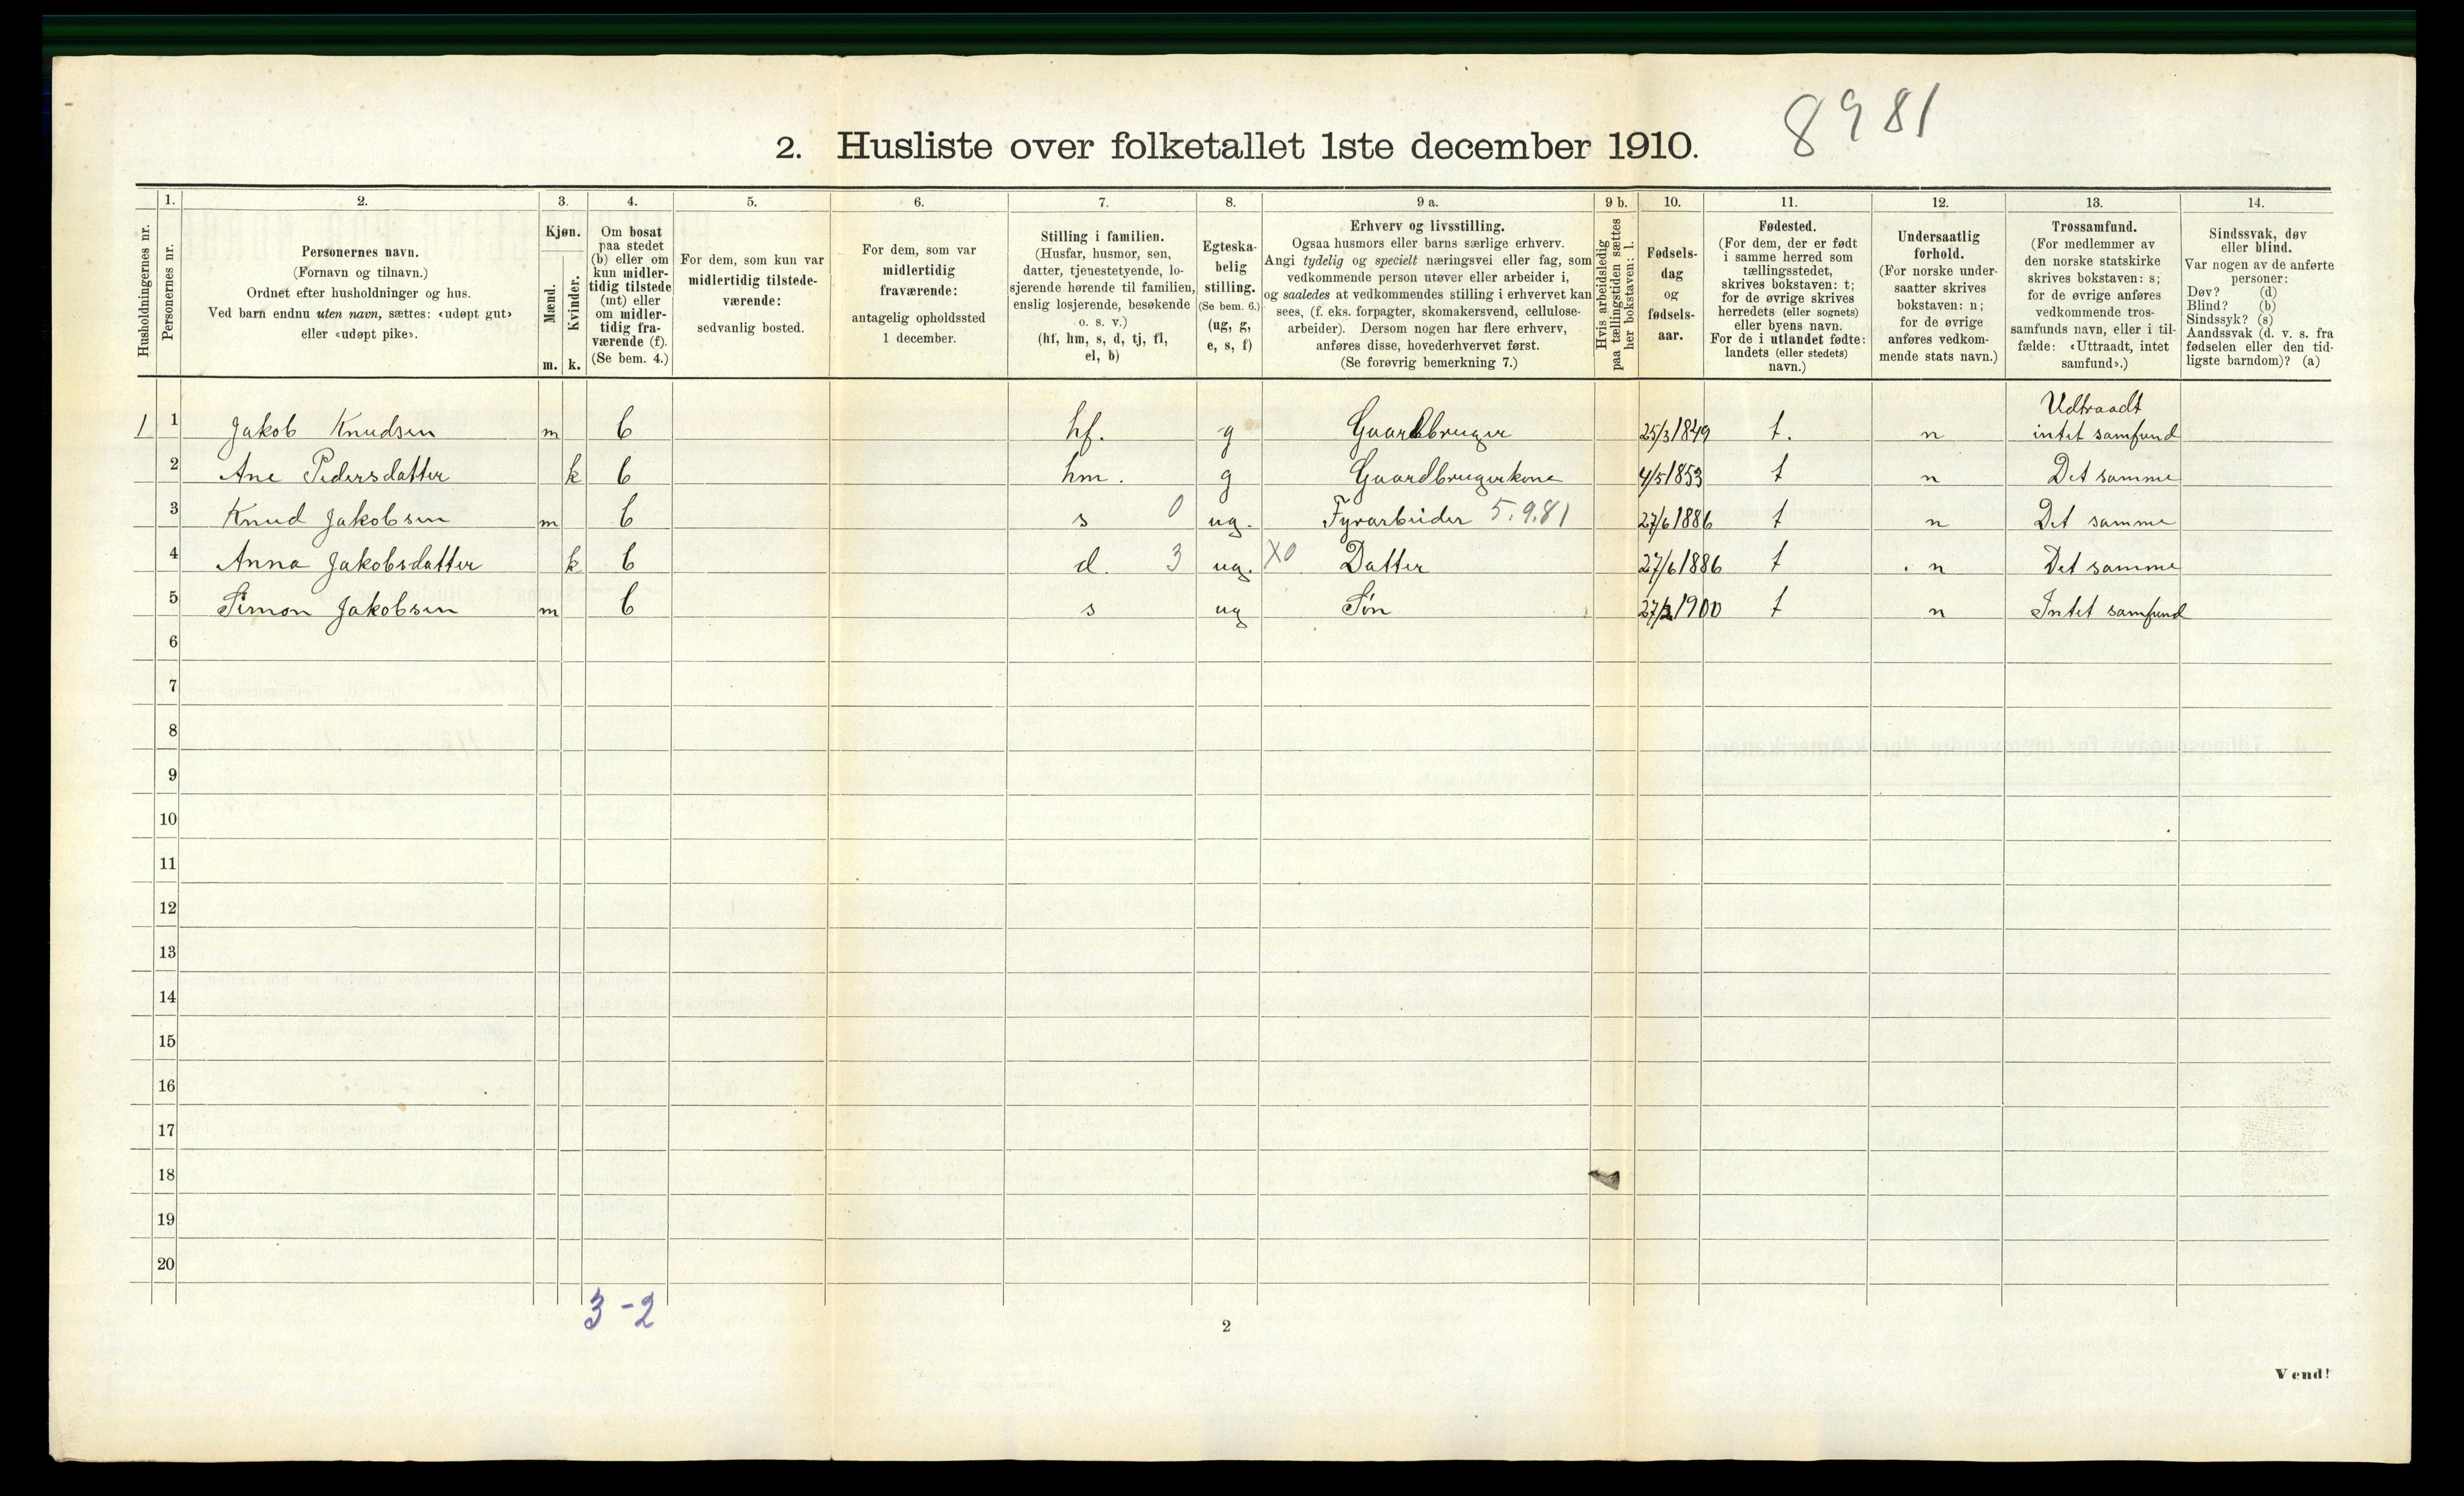 8981
2. Husliste over folketallet 1ste december 1910.
Husholdningernes nr.
1.
Personernes nr.
2.
Personernes navn.
(Fornavn og tilnavn.)
Ordnet efter husholdninger og hus.
Ved barn endnu uten navn, sættes: «udøpt gut»
eller «udøpt pike».
3.
Kjøn.
Mænd.
Kvinder.
m. k.
4.
Om bosat
paa stedet
(b) eller om
kun midler-
tidig tilstede
(mt) eller
om midler-
tidig fra-
værende (f).
(Se bem. 4.)
5.
For dem, som kun var
midlertidig tilstede-
værende:
sedvanlig bosted.
6.
For dem, som var
midlertidig
fraværende:
antagelig opholdssted
1 december.
7.
Stilling i familien.
(Husfar, husmor, søn,
datter, tjenestetyende, lo-
sjerende hørende til familien,
enslig losjerende, besøkende
o. s. v.)
(hf, hm, s, d, tj, fl,
el, b)
8.
Egteska-
belig
stilling.
(Se bem. 6.)
(ug, g,
e, s, f)
9 a.
Erhverv og livsstilling.
Ogsaa husmors eller barns særlige erhverv.
Angi tydelig og specielt næringsvei eller fag, som
vedkommende person utøver eller arbeider i,
og saaledes at vedkommendes stilling i erhvervet kan
sees, (f. eks. forpagter, skomakersvend, cellulose-
arbeider). Dersom nogen har flere erhverv,
anføres disse, hovederhvervet først.
(Se forøvrig bemerkning 7.)
9 b.
Hvis arbeidsledig
paa tællingstiden sættes
her bokstaven: l.
10.
Fødsels-
dag
og
fødsels-
aar.
11.
Fødested.
(For dem, der er født
i samme herred som
tællingsstedet,
skrives bokstaven: t;
for de øvrige skrives
herredets (eller sognets)
eller byens navn.
For de i utlandet fødte:
landets (eller stedets)
navn.)
12.
Undersaatlig
forhold.
(For norske under-
saatter skrives
bokstaven: n;
for de øvrige
anføres vedkom-
mende stats navn.)
13.
Trossamfund.
(For medlemmer av
den norske statskirke
skrives bokstaven: s;
for de øvrige anføres
vedkommende tros-
samfunds navn, eller i til-
fælde: «Uttraadt, intet
samfund».)
14.
Sindssvak, døv
eller blind.
Var nogen av de anførte
personer:
Døv? (d)
Blind? (b)
Sindssyk? (s)
Aandssvak (d. v. s. fra
fødselen eller den tid-
ligste barndom)? (a)
Udtraadt
1 1 Jakob Knudsen m b hf. g Gaardbruger 25/3 1849 t. n intet samfund
2 Ane Pedersdatter k b hm. g Gaardbrugerkone 4/5 1853 t n Det samme
3 Knud Jakobsen m b s 0 ug. Fyrarbeider 5.9.81 27/6 1886 t n Det samme
4 Anna Jakobsdatter k b d. 3 ug. X0 Datter 27/6 1886 t n Det samme
5 Simon Jakobsen m b s ug Søn 1900 t n Intet samfund
6
7
8
9
10
11
12
13
14
15
16
17
18
19
20
3-2
2
Vend!